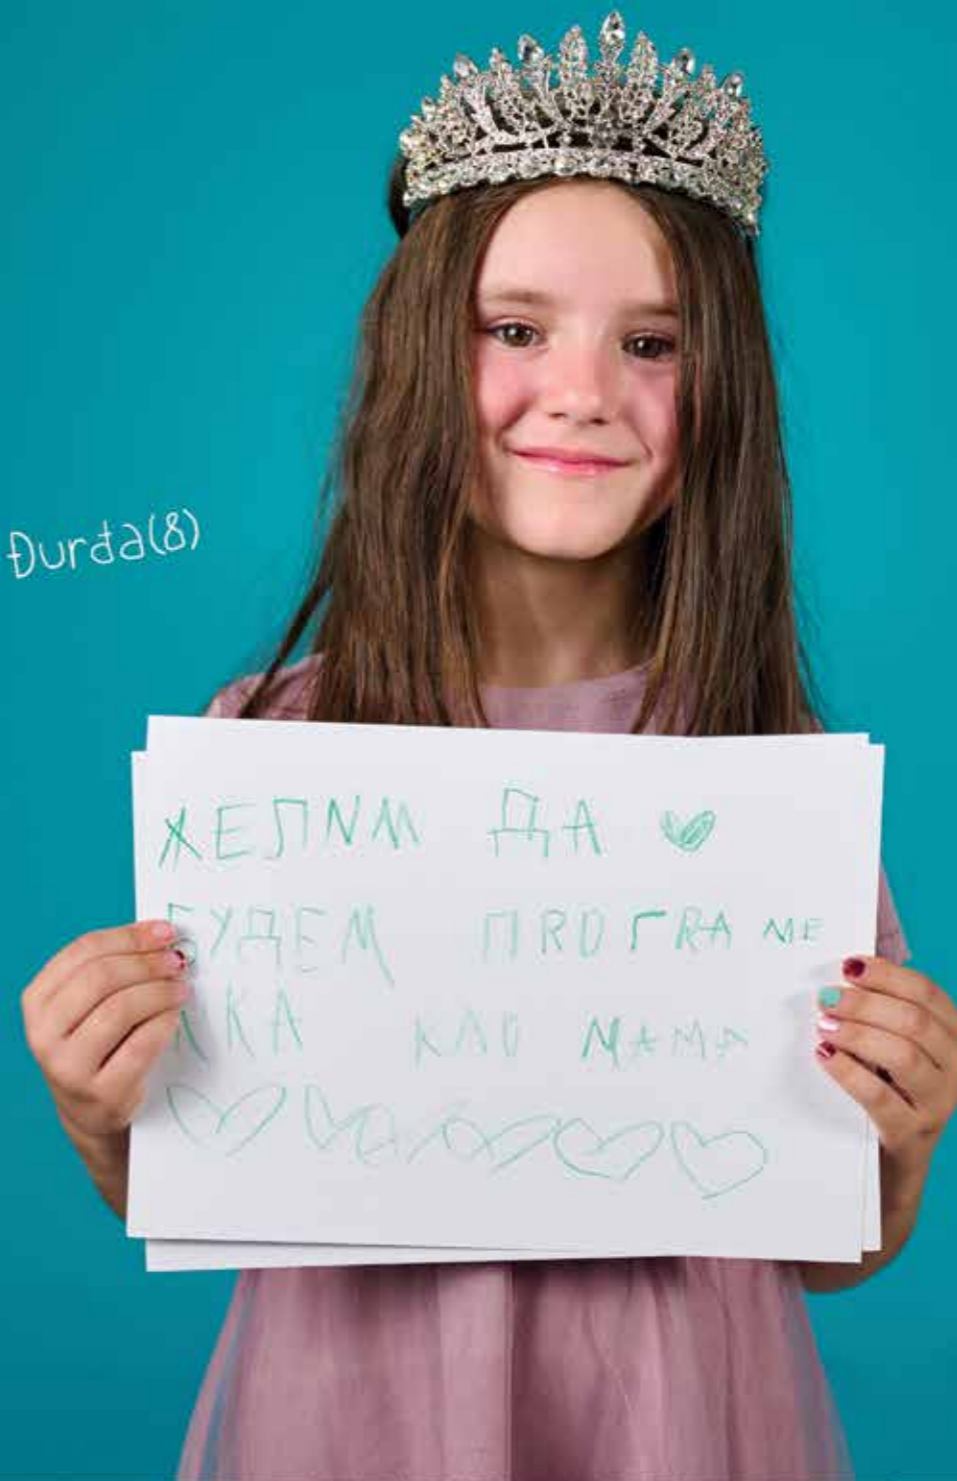 Đurđa(8)
ЖЕЛИМ ДА
БУДЕМ ПROГRA МЕ
РКА КАО МАМА